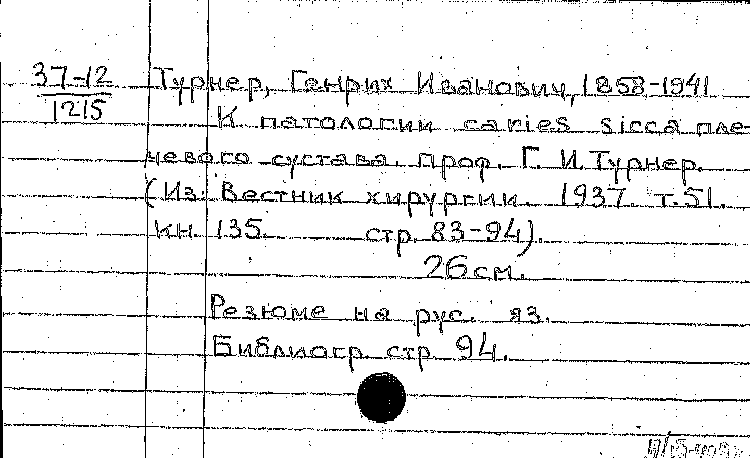 37-12 Турнер, Генрих Иванович, 1858-1941
1215
К патологии caries sicca пле-
чевого сустава. Проф. Г. И. Турнер.
(Из: Вестник хирургии. 1937. т. 51.
кн. 135. стр. 83-94).
26 см.
Резюме на рус. яз.
Библиогр. стр. 94.